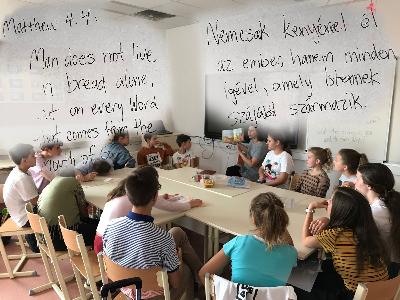 Matthew 4.4.
Man does not live
n bread alone,
ut on every Word
at comes from the
outh of
Nemcsak kenyérrel él
az ember, hanem minden
Igével, amely Istennek
szájából származik.